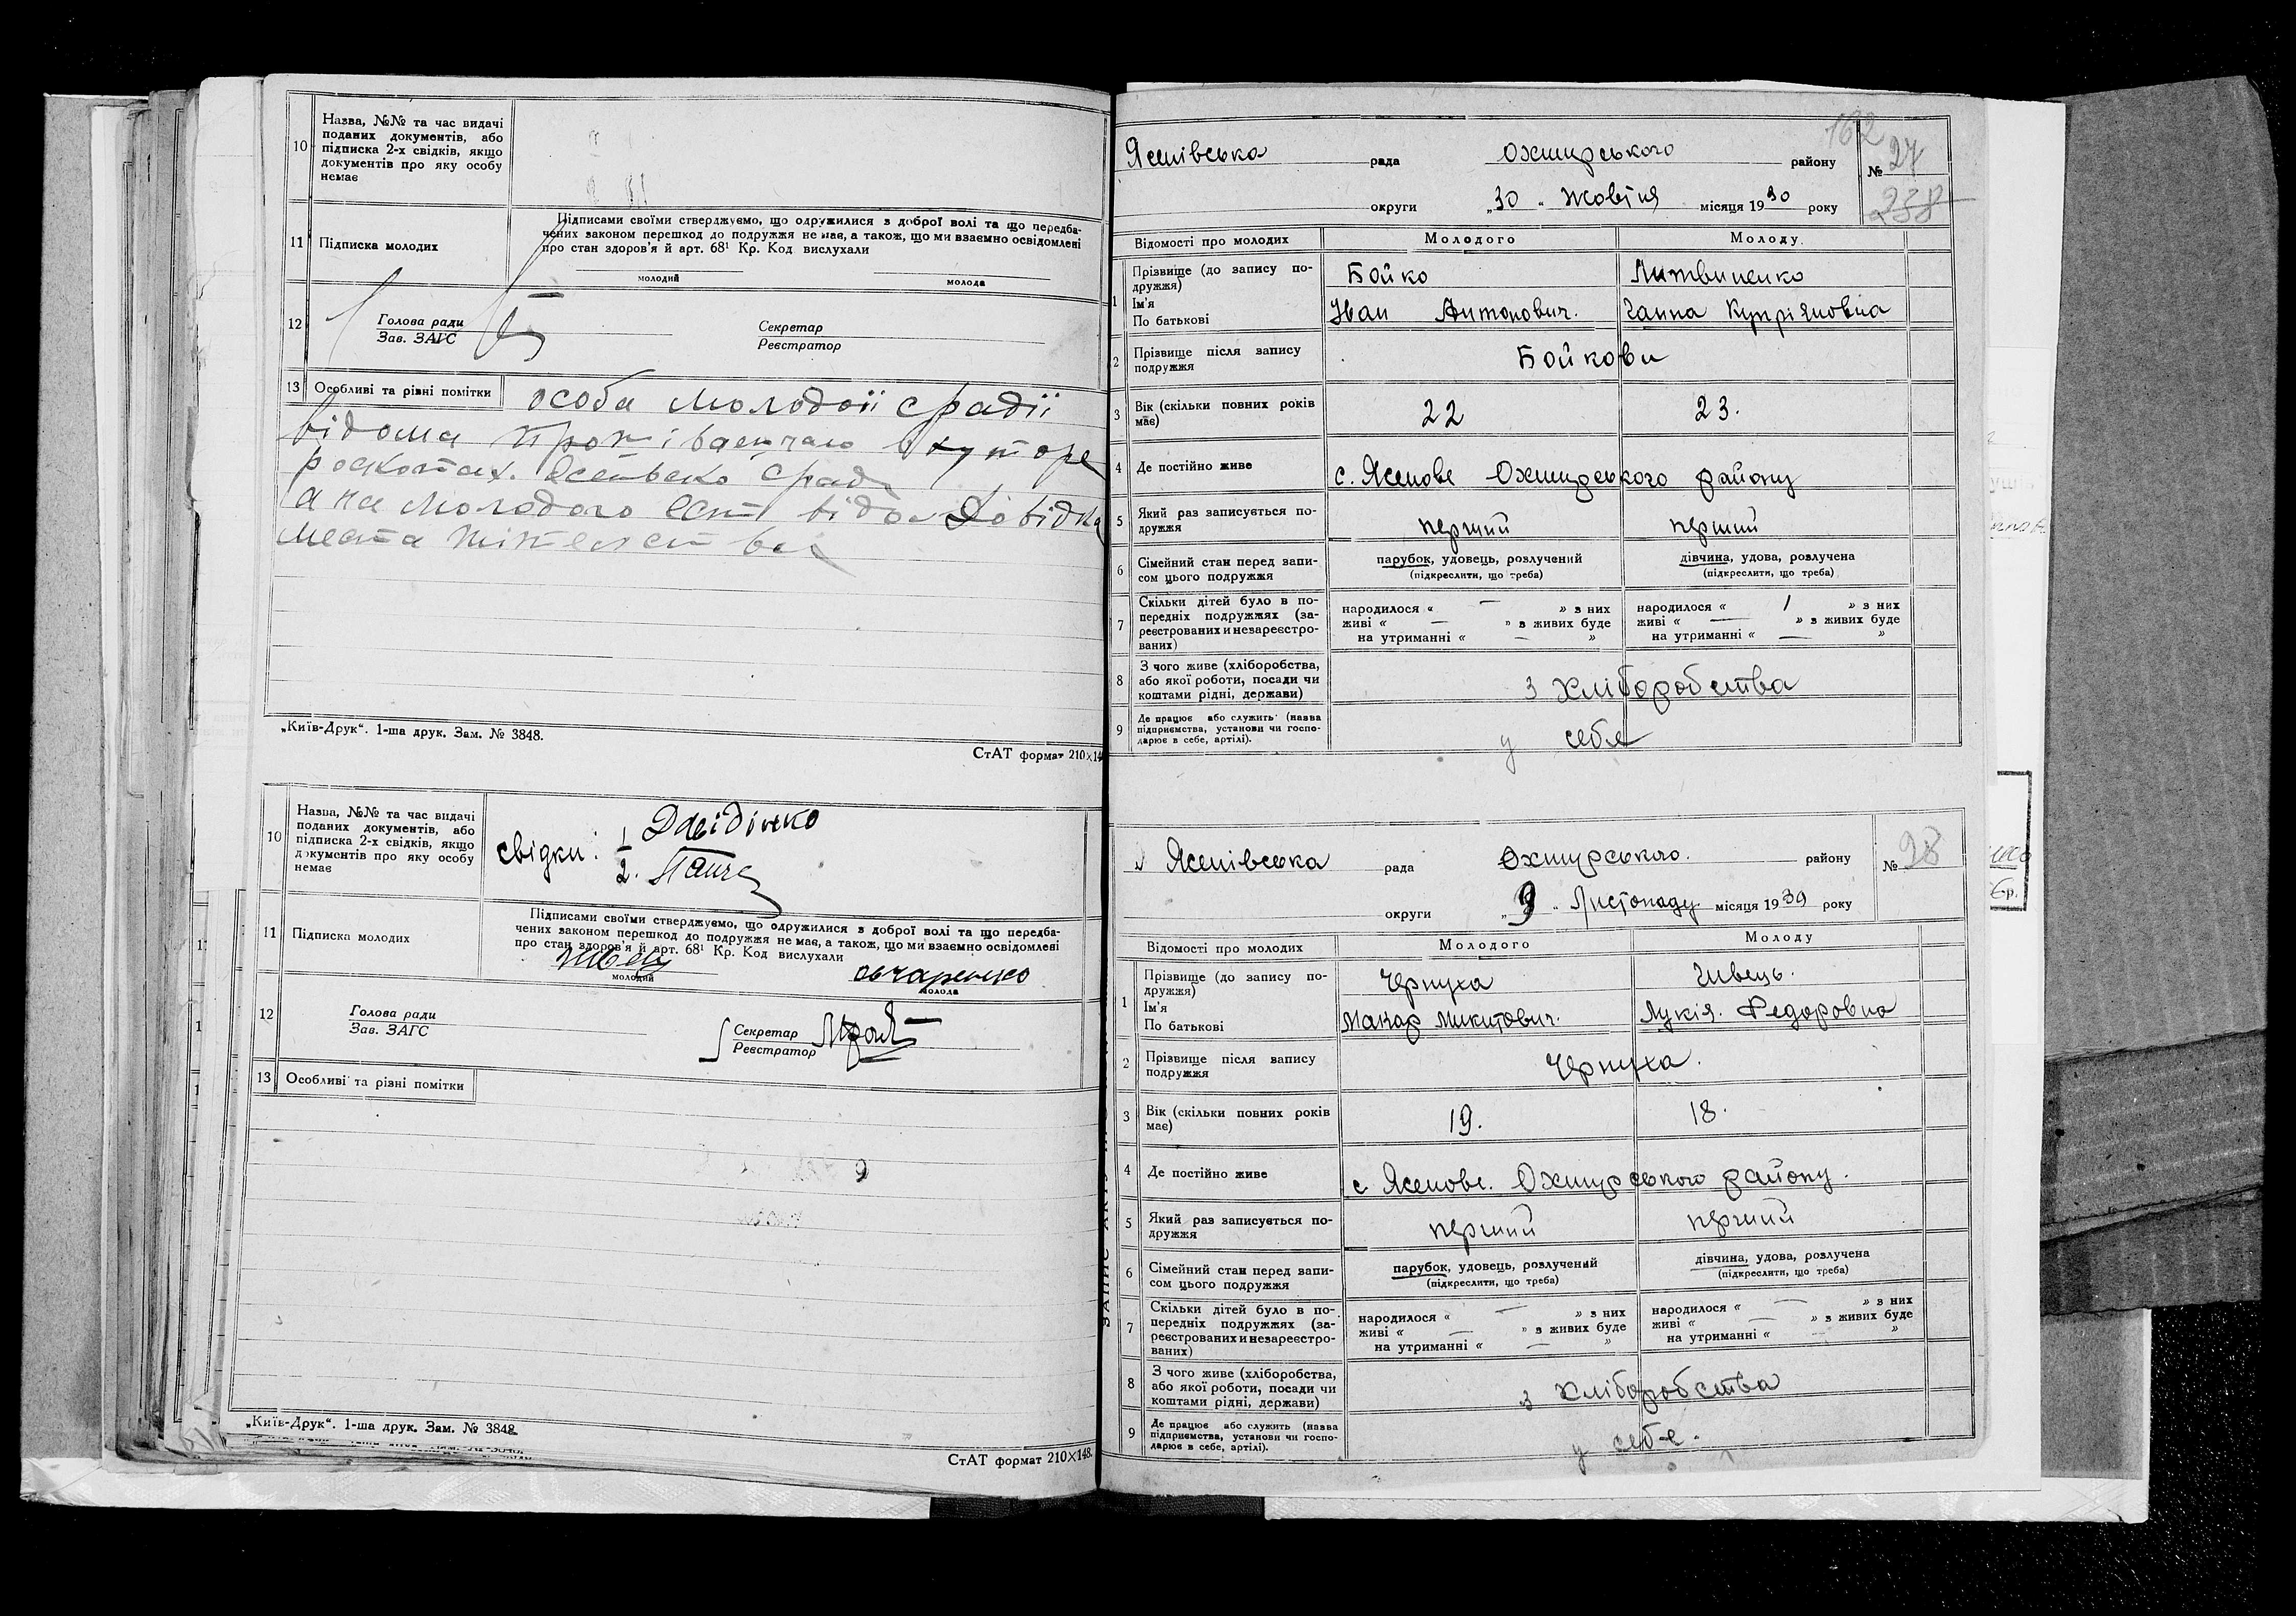 10
Назва, №№ та час видачі
поданих документів, або
підписка 2-х свідків, якщо
документів про яку особу
немає
11 Підписка молодих
Підписами своїми стверджуємо, що одружилися з доброї волі та що передба-
чених законом перешкод до подружжя не має, а також, що ми взаємно освідомлені
про стан здоров'я й арт. 68¹ Кр. Код вислухали
молодий молода
12
Голова ради
Зав. ЗАГС
Секретар
Реєстратор
13 Особливі та рівні помітки
особа молодоїі срадіі
відома
а на молодого
места
„Київ-Друк“. 1-ша друк. Зам. № 3848.
СтАТ формат 210×14
10
Назва, №№ та час видачі
поданих документів, або
підписка 2-х свідків, якщо
документів про яку особу
немає
свідки: 1 Давідінко
2.
11 Підписка молодих
Підписами своїми стверджуємо, що одружилися з доброї волі та що передба-
чених законом перешкод до подружжя не має, а також, що ми взаємно освідомлені
про стан здоров'я й арт. 68¹ Кр. Код вислухали
овчаренко
молодий молода
12
Голова ради
Зав. ЗАГС
Секретар
Реєстратор
13 Особливі та різні помітки
„Київ-Друк“. 1-ша друк. Зам. № 3848.
СтАТ формат 210×148.
162
Ясенівська рада Охтирського району
№ 27
округи „30“ Жовтня місяця 1930 року
238
Відомості про молодих Молодого Молоду
1
Прізвище (до запису по-
дружжя)
Ім'я
По батькові
Бойко Литвиненко
Іван Антонович. Ганна Купріяновна
2
Прізвище після запису
подружжя
Бойкови
3
Вік (скільки повних років
має)
22 23.
4 Де постійно живе
с. Ясенове Охтирського району
5
Який раз записується по-
дружжя
перший перший
6
Сімейний стан перед запи-
сом цього подружжя
парубок, удовець, розлучений
(підкреслити, що треба)
дівчина, удова, розлучена
(підкреслити, що треба)
7
Скільки дітей було в по-
передніх подружжях (за-
реєстрованих и незареєстро-
ваних)
народилося « — » з них
живі « — » з живих буде
на утриманні « — »
народилося « / » з них
живі « — » з живих буде
на утриманні « — »
8
З чого живе (хліборобства,
або якої роботи, посади чи
коштами рідні, держави)
з хліборобства
9
Де працює або служить (назва
підприємства, установи чи госпо-
дарює в себе, артілі).
у себе
Ясенівська рада Охтирського. району
№ 28
округи „9“ Листопаду місяця 1930 року
Відомості про молодих Молодого Молоду
1
Прізвище (до запису по-
дружжя)
Ім'я
По батькові
Чернуха Швець.
Макар Микитович. Лукія. Федоровна
2
Прізвище після запису
подружжя
Чернуха.
3
Вік (скільки повних років
має)
19. 18.
4 Де постійно живе
с Ясенове. Охтирського району.
5
Який раз записується по-
дружжя
перший перший
6
Сімейний стан перед запи-
сом цього подружжя
парубок, удовець, розлучений
(підкреслити, що треба)
дівчина, удова, розлучена
(підкреслити, що треба)
7
Скільки дітей було в по-
передніх подружжях (за-
реєстрованих и незареєстро-
ваних)
народилося « — » з них
живі « — » з живих буде
на утриманні « — »
народилося « — » з них
живі « — » з живих буде
на утриманні « — »
8
З чого живе (хліборобства,
або якої роботи, посади чи
коштами рідні, держави)
з хліборобства
9
Де працює або служить (назва
підприємства, установи чи госпо-
дарює в себе, артілі).
у себе.